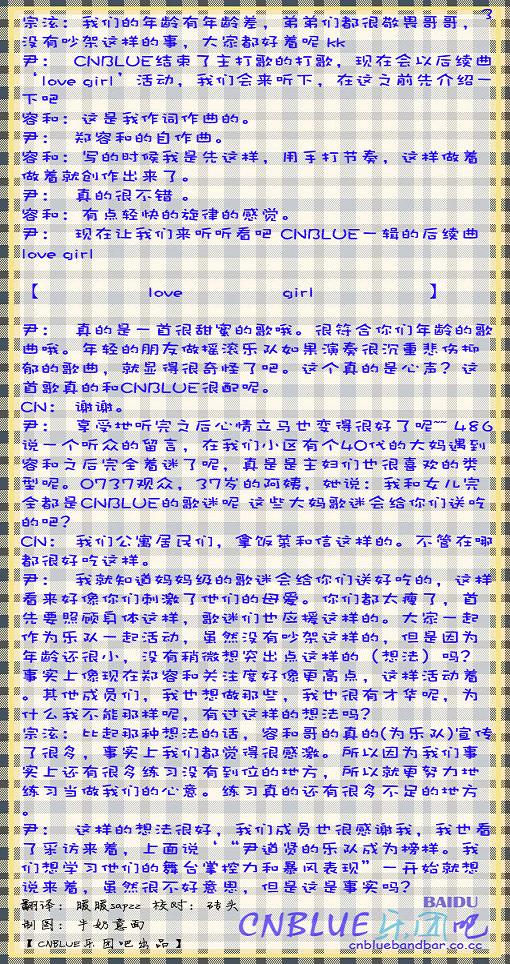 3
宗泫：我们的年龄有年龄差，弟弟们都很敬畏哥哥，
没有吵架这样的事，大家都好着呢 kk
尹： CNBLUE结束了主打歌的打歌，现在会以后续曲
‘love girl’活动，我们会来听下，在这之前先介绍一
下吧
容和：这是我作词作曲的。
尹： 郑容和的自作曲。
容和：写的时候我是先这样，用手打节奏，这样做着
做着就创作出来了。
尹： 真的很不错 。
容和：有点轻快的旋律的感觉。
尹： 现在让我们来听听看吧 CNBLUE一辑的后续曲
love girl
【 love girl 】
尹： 真的是一首很甜蜜的歌哦。很符合你们年龄的歌
曲哦。年轻的朋友做摇滚乐队如果演奏很沉重悲伤抑
郁的歌曲，就显得很奇怪了吧。这个真的是心声？这
首歌真的和CNBLUE很配呢。
CN：谢谢。
尹： 享受地听完之后心情立马也变得很好了呢~~ 486
说一个听众的留言，在我们小区有个40代的大妈遇到
容和之后完全着迷了呢，真是是主妇们也很喜欢的类
型呢。0737观众，37岁的阿姨，她说：我和女儿完
全都是CNBLUE的歌迷呢 这些大妈歌迷会给你们送吃
的吧？
CN：我们公寓居民们，拿饭菜和信这样的。不管在哪
都很好吃这样。
尹： 我就知道妈妈级的歌迷会给你们送好吃的，这样
看来好像你们刺激了他们的母爱。你们都太瘦了，首
先要照顾身体这样，歌迷们也应援这样的。大家一起
作为乐队一起活动，虽然没有吵架这样的，但是因为
年龄还很小，没有稍微想突出点这样的（想法）吗？
事实上像现在郑容和关注度好像更高点，这样活动着
。其他成员们，我也想做那些，我也很有才华呢，为
什么我不能那样呢，有过这样的想法吗？
宗泫：比起那种想法的话，容和哥的真的(为乐队)宣传
了很多，事实上我们都觉得很感激。所以因为我们事
实上还有很多练习没有到位的地方，所以就更努力地
练习当做我们的心意。练习真的还有很多不足的地方
。
尹： 这样的想法很好，我们成员也很感谢我，我也看
了采访来着，上面说‘“尹道贤的乐队成为榜样。我
们想学习他们的舞台掌控力和暴风表现”一开始就想
说来着，虽然很不好意思，但是这是事实吗？
翻译：暖暖sapzz 校对：砖头
制图：牛奶意面
【CNBLUE乐团吧出品】
BAIDU
CNBLUE乐团吧
cnbluebandbar.co.cc